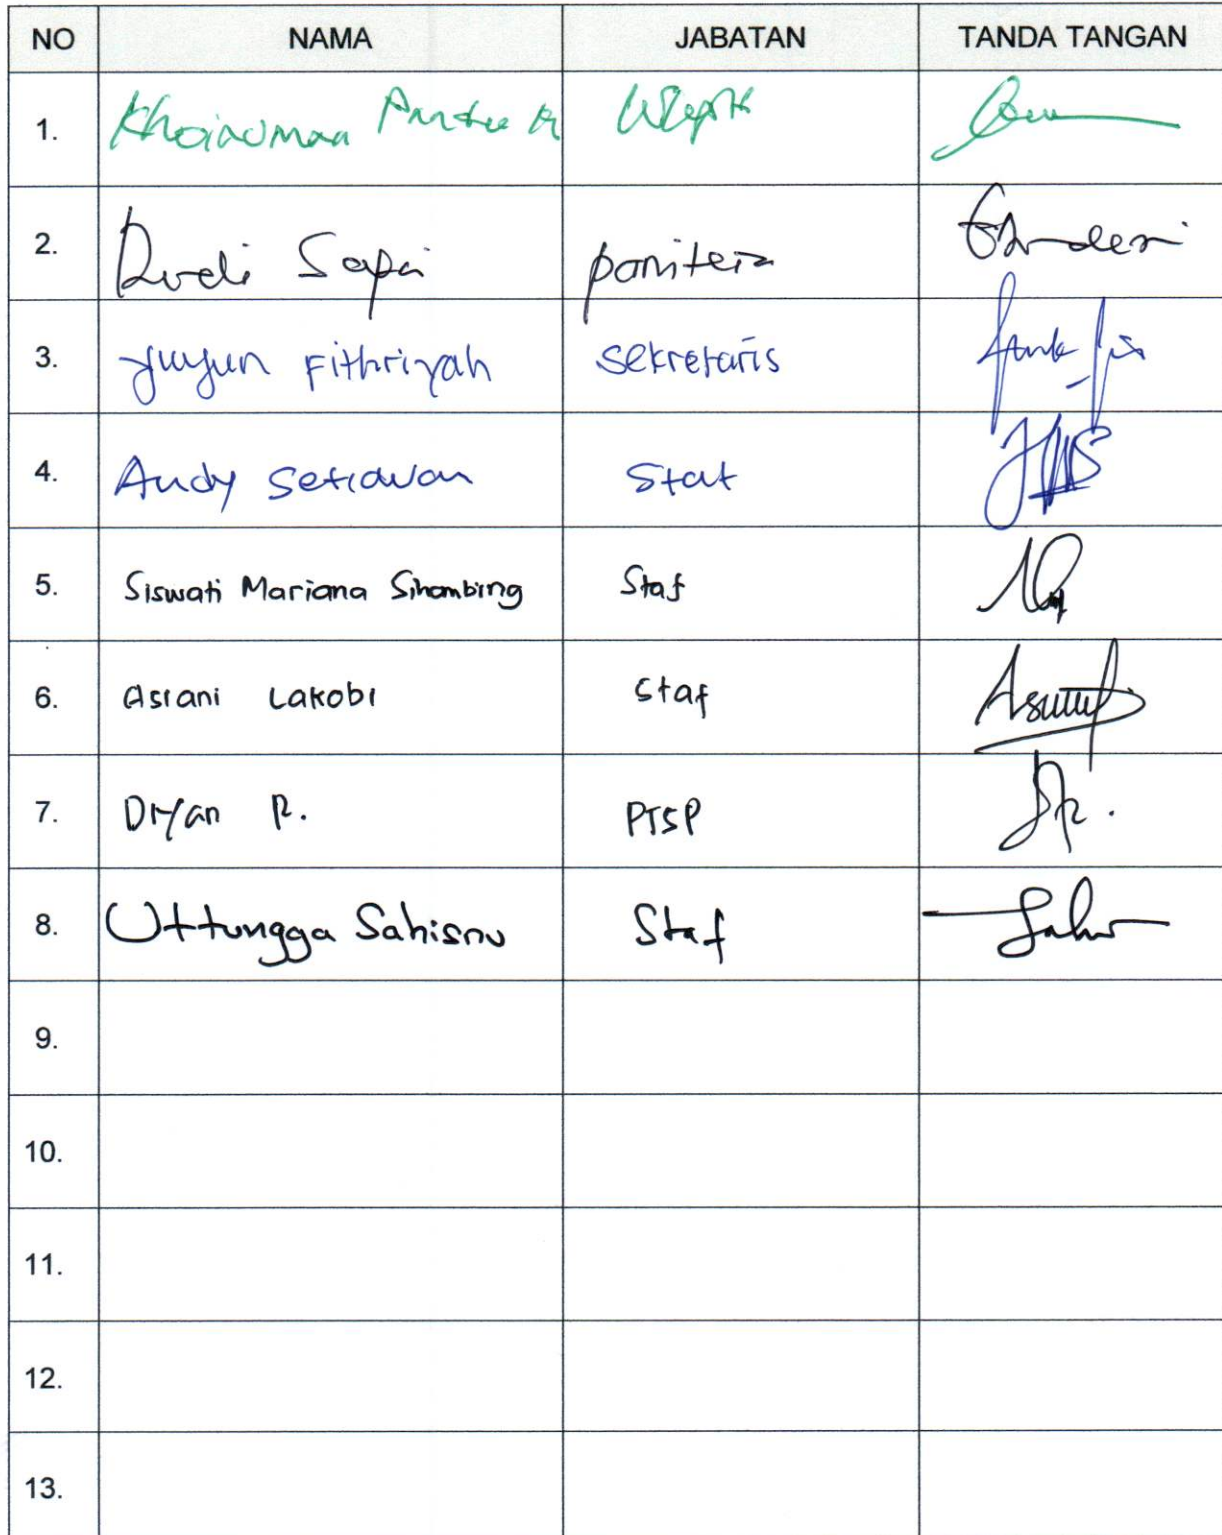 NO NAMA JABATAN TANDA TANGAN
1.
2. Rudi Sapri panitera
3. yuyun Fithriyah sekretaris
4. Andy Setiawan Staf
5. Siswati Mariana Sihombing Staf
6. Asrani Lakobi staf
7. Dryan P. PTSP
8. Uttungga Sahisnu Staf
9.
10.
11.
12.
13.